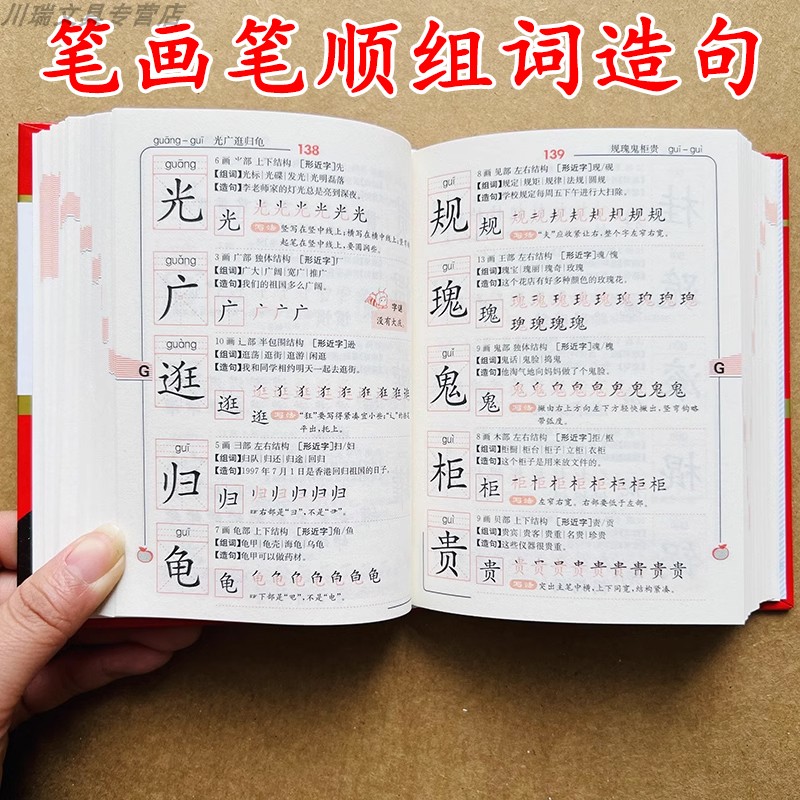 川瑞文具专营店
笔画笔顺组词造句
guāng-guī 光广逛归龟
138
guāng
光
6画 ⺌部 上下结构 [形近字]先
【组词】光标|光碟|发光|光明磊落
【造句】李老师家的灯光总是亮到深夜。
光
写法 竖写在竖中线上；横写在横中线上；
起笔在竖中线上，要圆润些。
guǎng
广
3画 广部 独体结构 [形近字]厂
【组词】广大|广阔|宽广|推广
【造句】我们的祖国多么广阔。
广
字谜
没有大点。
guàng
逛
10画 辶部 半包围结构 [形近字]逊
【组词】逛荡|逛街|逛游|闲逛
【造句】我和同学相约明天一起去逛街。
逛
写法 “狂”要写得紧凑宜小些；“辶”的
平出，托上。
G
guī
归
5画 彐部 左右结构 [形近字]扫/妇
【组词】归队|归还|归途|回归
【造句】1997年7月1日是香港回归祖国的日子。
归
右部是“彐”，不是“彐”。
guī
龟
7画 龟部 上下结构 [形近字]角/鱼
【组词】龟甲|龟壳|海龟|乌龟
【造句】龟甲可以做药材。
龟
下部是“电”，不是“电”。
139
规瑰鬼柜贵 guī-guì
guī
规
8画 见部 左右结构 [形近字]现/砚
【组词】规定|规矩|规律|法规|圆规
【造句】学校规定每周五下午进行大扫除。
规
写法 “夫”应收紧让右，整个字左窄右宽。
guī
瑰
13画 王部 左右结构 [形近字]魂/愧
【组词】瑰宝|瑰丽|瑰奇|玫瑰
【造句】这个花店有好多种颜色的玫瑰花。
瑰
guǐ
鬼
9画 鬼部 独体结构 [形近字]魂/槐
【组词】鬼话|鬼脸|捣鬼
【造句】他淘气地向妈妈做了个鬼脸。
鬼
写法 撇由右上方向左下方轻快撇出，竖弯钩略
带弧度。
G
guì
柜
8画 木部 左右结构 [形近字]拒/枢
【组词】柜橱|柜台|柜子|立柜|衣柜
【造句】这个柜子是用来放文件的。
柜
写法 左窄右宽。右部要低于左部。
guì
贵
9画 贝部 上下结构 [形近字]责/贡
【组词】贵宾|贵客|贵重|名贵|珍贵
【造句】这些仪器很贵重。
贵
写法 突出主笔中横，上下同宽，结构紧凑。